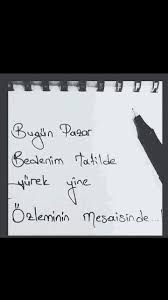 Bugün Pazar
Bedenim Tatilde
yürek yine
Özleminin Mesaisinde...!